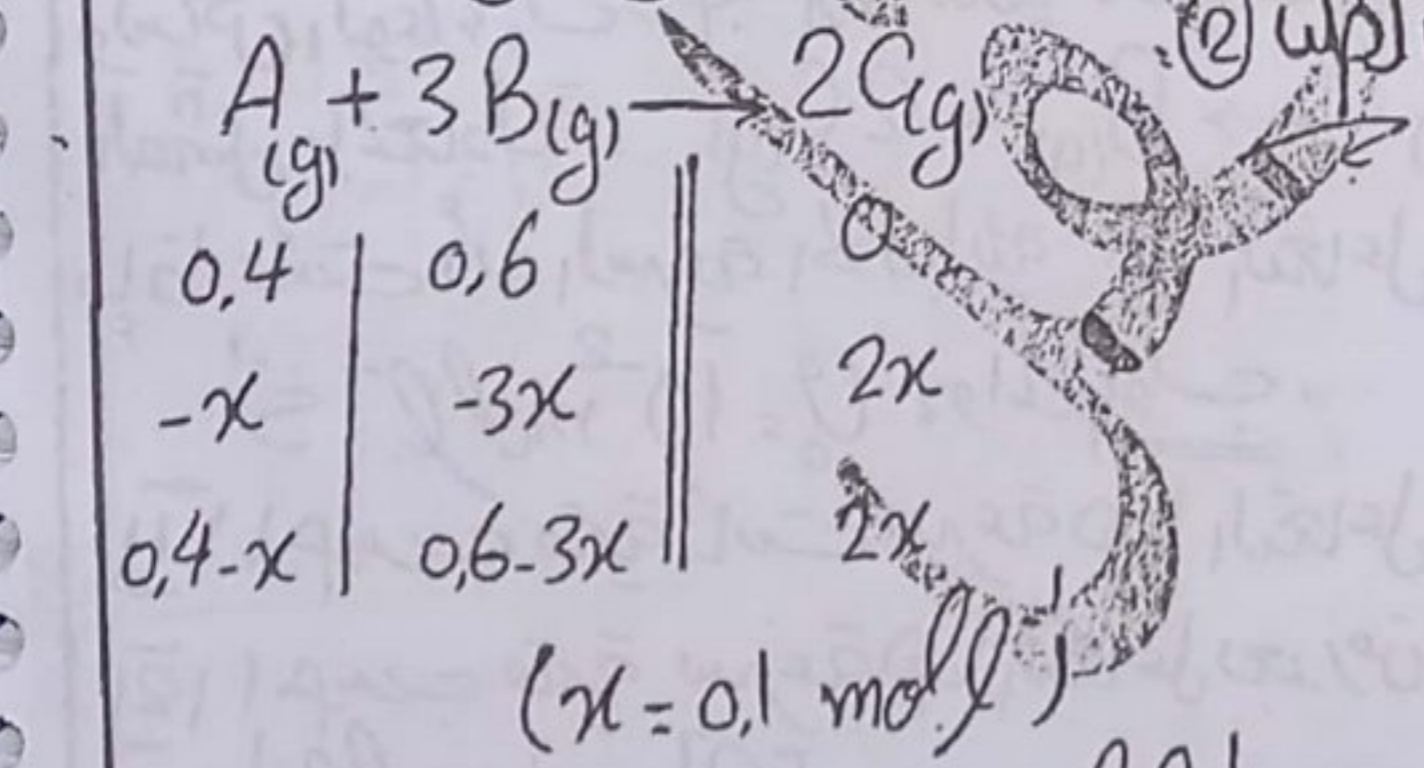 A(g) + 3B(g) → 2C(g)
0,4 | 0,6 || 0
-x | -3x || 2x
0,4-x | 0,6-3x || 2x
(x = 0,1 mol.l⁻¹)